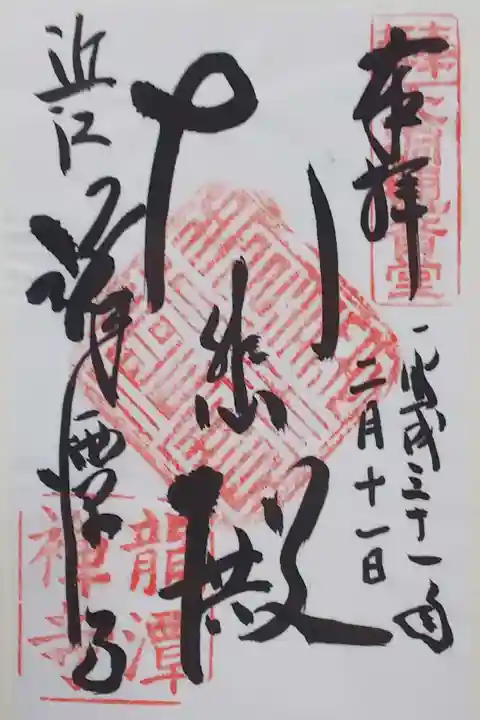 奉拝
大洞觀音堂
平成三十一年
二月十一日
殿
近江 龍潭寺
龍潭
禪寺